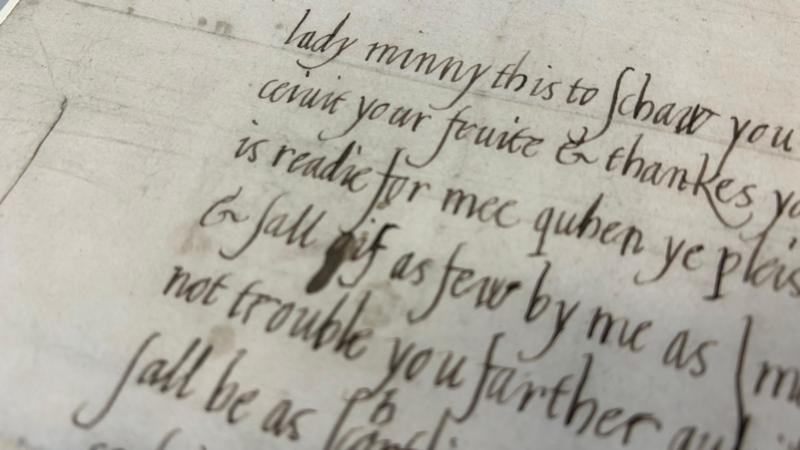 lady minny this to schaw you
ceiuit your fruite & thankes
is readie for mee quhen ye pleis
& sall gif as few by me as
not trouble you farther
sall be as